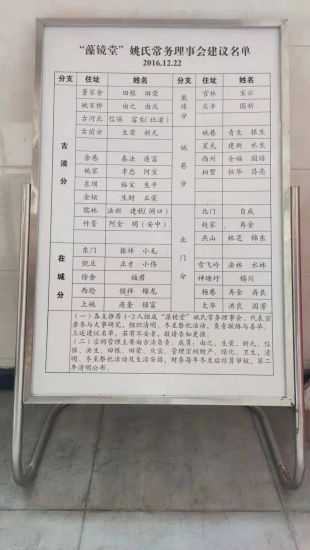 “藻镜堂”姚氏常务理事会建议名单
2016.12.22
分支 住址 姓名 分支 住址 姓名
董家舍 田根 田荣 官林 宝云
姚家桥 由之 由庆 庄羊 国新
古河北 信保 富生(社渚)
古前分 生荣 新元 姚巷 青生 银生
星光 建新 水生
舍巷 春法 连富 西州 全福 国培
姚家 孝忠 阿宝 柏墅 恒华 昌亮
东坝 裕宝 生平
金坛 生财 正荣
儒林 法新 建敖(闸口) 北门 自成
竹箦 阿金 明(安中) 赵家 再金
燕山 林芝 锦东
古渎分
姚巷分
东门 振祥 小毛
倪庄 正才 小伟 雪飞岭 法林 水林
徐舍 福君 神塘圩 锡川
西埝 锁祥 锦龙 杨巷 寿金 再良
上姚 连奎 锁富 太华 洪良 国芳
在城分
北门分
(一)各支推荐1-2人组成“藻镜堂”姚氏常务理事会。代表宗
亲参与大事研究，组织清明、冬至祭祀活动，负责联络与募华。
上述建议名单，若有不妥者，敬请告知更换。
(二)宗祠管理主要由古渎自青，成员：由之、生荣、新元、信
保、洪生、田根、田荣、庆宗。管理宗祠财产、绿化、卫生，清
明、冬至祭祀活动及生活安排，财务每年冬至后结算审核，第二
年清明公布。